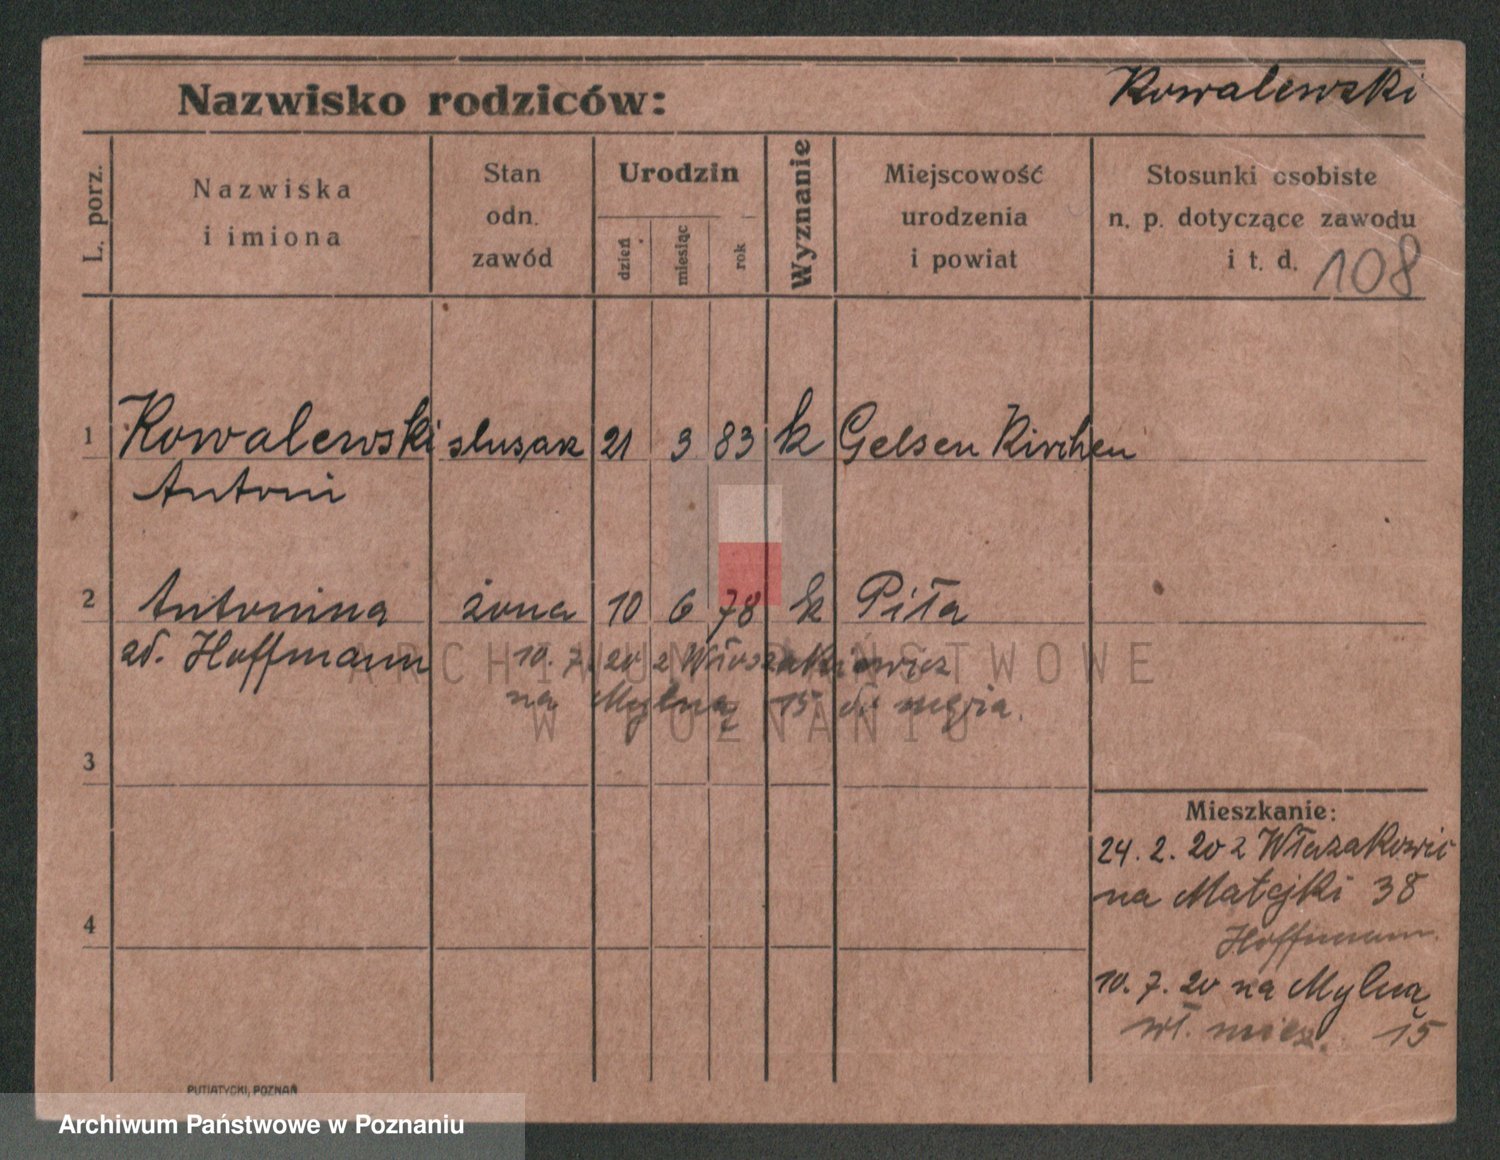 Nazwisko rodziców:
Kowalewski
L. porz.
Nazwiska
i imiona
Stan
odn.
zawód
Urodzin
dzień
miesiąc
rok
Wyznanie
Miejscowość
urodzenia
i powiat
Stosunki osobiste
n. p. dotyczące zawodu
i t. d.
108
1 Kowalewski slusarz 21 3 83 k Gelsen Kirchen
Antoni
2 Antonina żona 10 6 78 k Piła
zd. Hoffmann 10. 7. 20 z Włoszakowicz
na Mylną 15 do męża.
3
4
Mieszkanie:
24. 2. 20 z Włoszakowic
na Matejki 38
Hoffmann.
10. 7. 20 na Mylną
wł. miesz. 15
PUTIATYCKI, POZNAŃ
ARCHIWUM PAŃSTWOWE
W POZNANIU
Archiwum Państwowe w Poznaniu